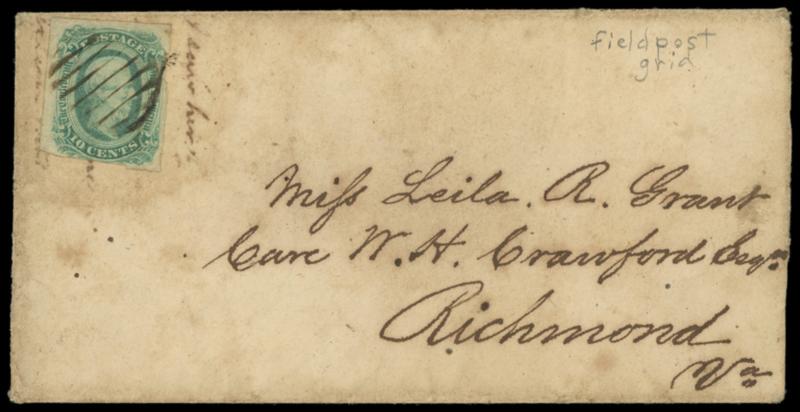 POSTAGE
10 CENTS
fieldpost
grid
Miss Leila. R. Grant
Care W. H. Crawford Esqr.
Richmond
Va